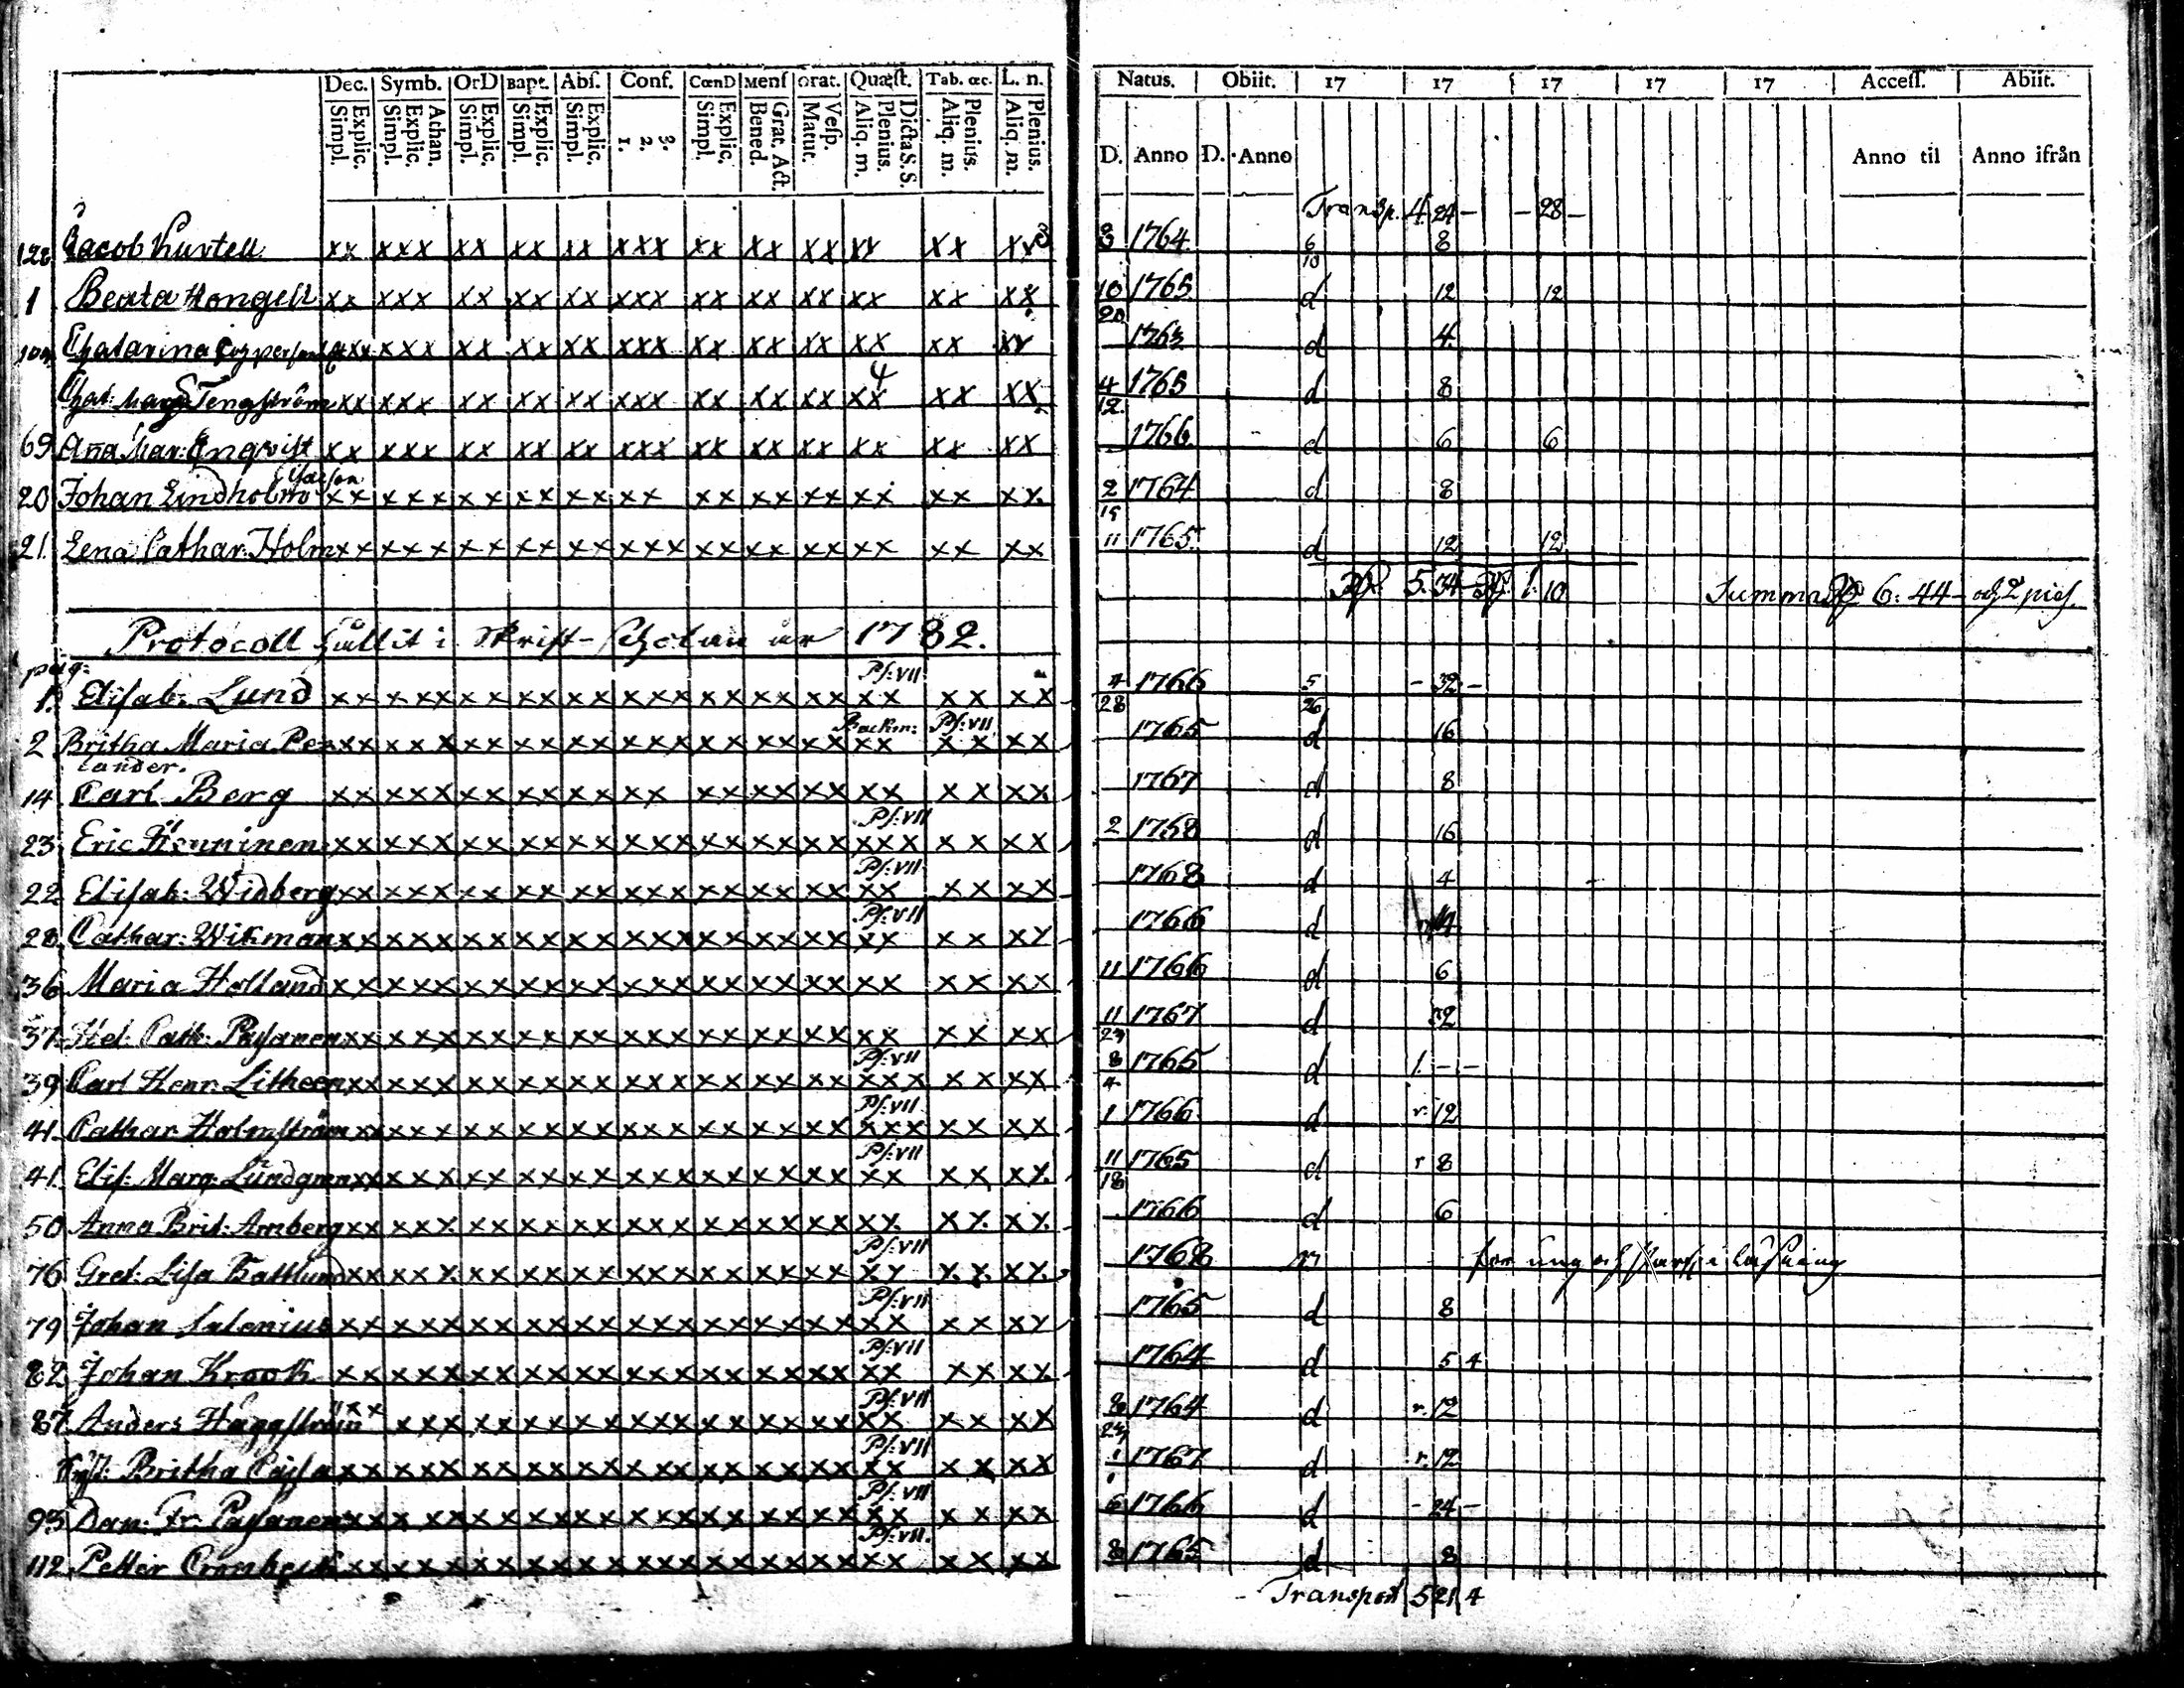 Dec. Symb. OrD Bapt. Abſ. Conf. CœnD Menſ Orat. Quæſt. Tab. œc. L. n.
Explic. Simpl. Athan. Explic. Simpl. Explic. Simpl. Explic. Simpl. Explic. Simpl. 3. 2. 1. Explic. Simpl. Grat. Act. Bened. Veſp. Matut. Dicta S. S. Plenius. Aliq. m. Plenius. Aliq. m. Plenius. Aliq. m.
Natus. Obiit. 17 17 17 17 17 Acceſſ. Abiit.
D. Anno D. Anno Anno til Anno ifrån
Transp. 4 24 - - 28 -
Jacob xx xxx xx xx xx xxx xx xx xx xx xx xx 1764 6/10 8
1 Beata Hongell xx xxx xx xx xx xxx xx xx xx xx xx xx 10/20 1765 d 12 12
Chatarina xx xxx xx xx xx xxx xx xx xx xx xx xx 1763 d 4
Chat: Marg Tengström xx xxx xx xx xx xxx xx xx xx xx xx xx 4/12 1765 d 8
69 Aña Mar: Enqvist xx xxx xx xx xx xxx xx xx xx xx xx xx 1766 d 6 6
20 Johan Lindholm xx xxx xx xx xx xx xx xx xx xx xx xx 2/19 1764 d 8
21. Lena Cathar. Holm xx xxx xx xx xx xxx xx xx xx xx xx xx 11 1765 d 12 12
5. 34 1. 10 Summa 6: 44 -
Protocoll hållit i Skrift-scholan år 1782.
pag:
1. Elisab. Lund xx xxx xx xx xx xxx xx xx xx Ps: VII xx xx xx 4/28 1766 5/26 - 32 -
2 Britha Maria Pe- xx xxx xx xx xx xxx xx xx xx xx Ps: VII xx xx 1765 d 16
lander.
14 Carl Berg xx xxx xx xx xx xx xx xx xx xx xx xx 1767 d 8
23. Eric xx xxx xx xx xx xxx xx xx xx Ps: VII xxx xx xx 2 1768 d 16
22 Elisab: Widberg xx xxx xx xx xx xxx xx xx xx Ps: VII xx xx xx 1768 d 4
28. Cathar: Wikman xx xxx xx xx xx xxx xx xx xx Ps: VII xx xx xx 1766 d
36 Maria Holland xx xxx xx xx xx xxx xx xx xx xx xx xx 11 1766 d 6
37. Hel: Cath: Pasanen xx xxx xx xx xx xxx xx xx xx xx xx xx 11/23 1767 d 32
39 Carl Henr: Litheen xx xxx xx xx xx xxx xx xx xx Ps: VII xxx xx xx 8/4 1765 d 1. - -
41. Cathar Holmström xx xxx xx xx xx xxx xx xx xx Ps: VII xxx xx xx 1 1766 d r. 12
41. Elis: Marg. Lundgren xx xxx xx xx xx xxx xx xx xx Ps: VII xx xx xx 11/18 1765 d r 8
50 Anna Brit: Amberg xx xxx xx xx xx xxx xx xx xx xx xx xx 1766 d 6
76 Gret: Lisa xx xxx xx xx xx xxx xx xx xx Ps: VII xx xx xx 1768 för ung och i läsning
79 Johan Salenius xx xxx xx xx xx xxx xx xx xx Ps: VII xx xx xx 1765 d 8
82. Johan Krook xx xxx xx xx xx xxx xx xx xx Ps: VII xx xx xx 1764 d 5 4
87. Anders Häggström xx xxx xx xx xx xxx xx xx xx Ps: VII xx xx xx 1764 d r. 12
Britha Cajsa xx xxx xx xx xx xxx xx xx xx Ps: VII xx xx xx 1 1767 d r. 12
93 Dan: Fr: Pasanen xx xxx xx xx xx xxx xx xx xx Ps: VII xx xx xx 6 1766 d - 24 -
112. Petter xx xxx xx xx xx xxx xx xx xx Ps: VII. xx xx xx 8 1765 d 8
Transport 5 21 4